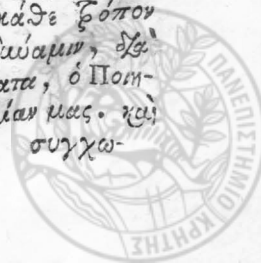 κάθε τρόπον
δύαμιν, διὰ
ατα, ὁ Ποιη-
μίαν μας. καὶ
συγχω-
ΠΑΝΕΠΙΣΤΗΜΙΟ ΚΡΗΤΗΣ